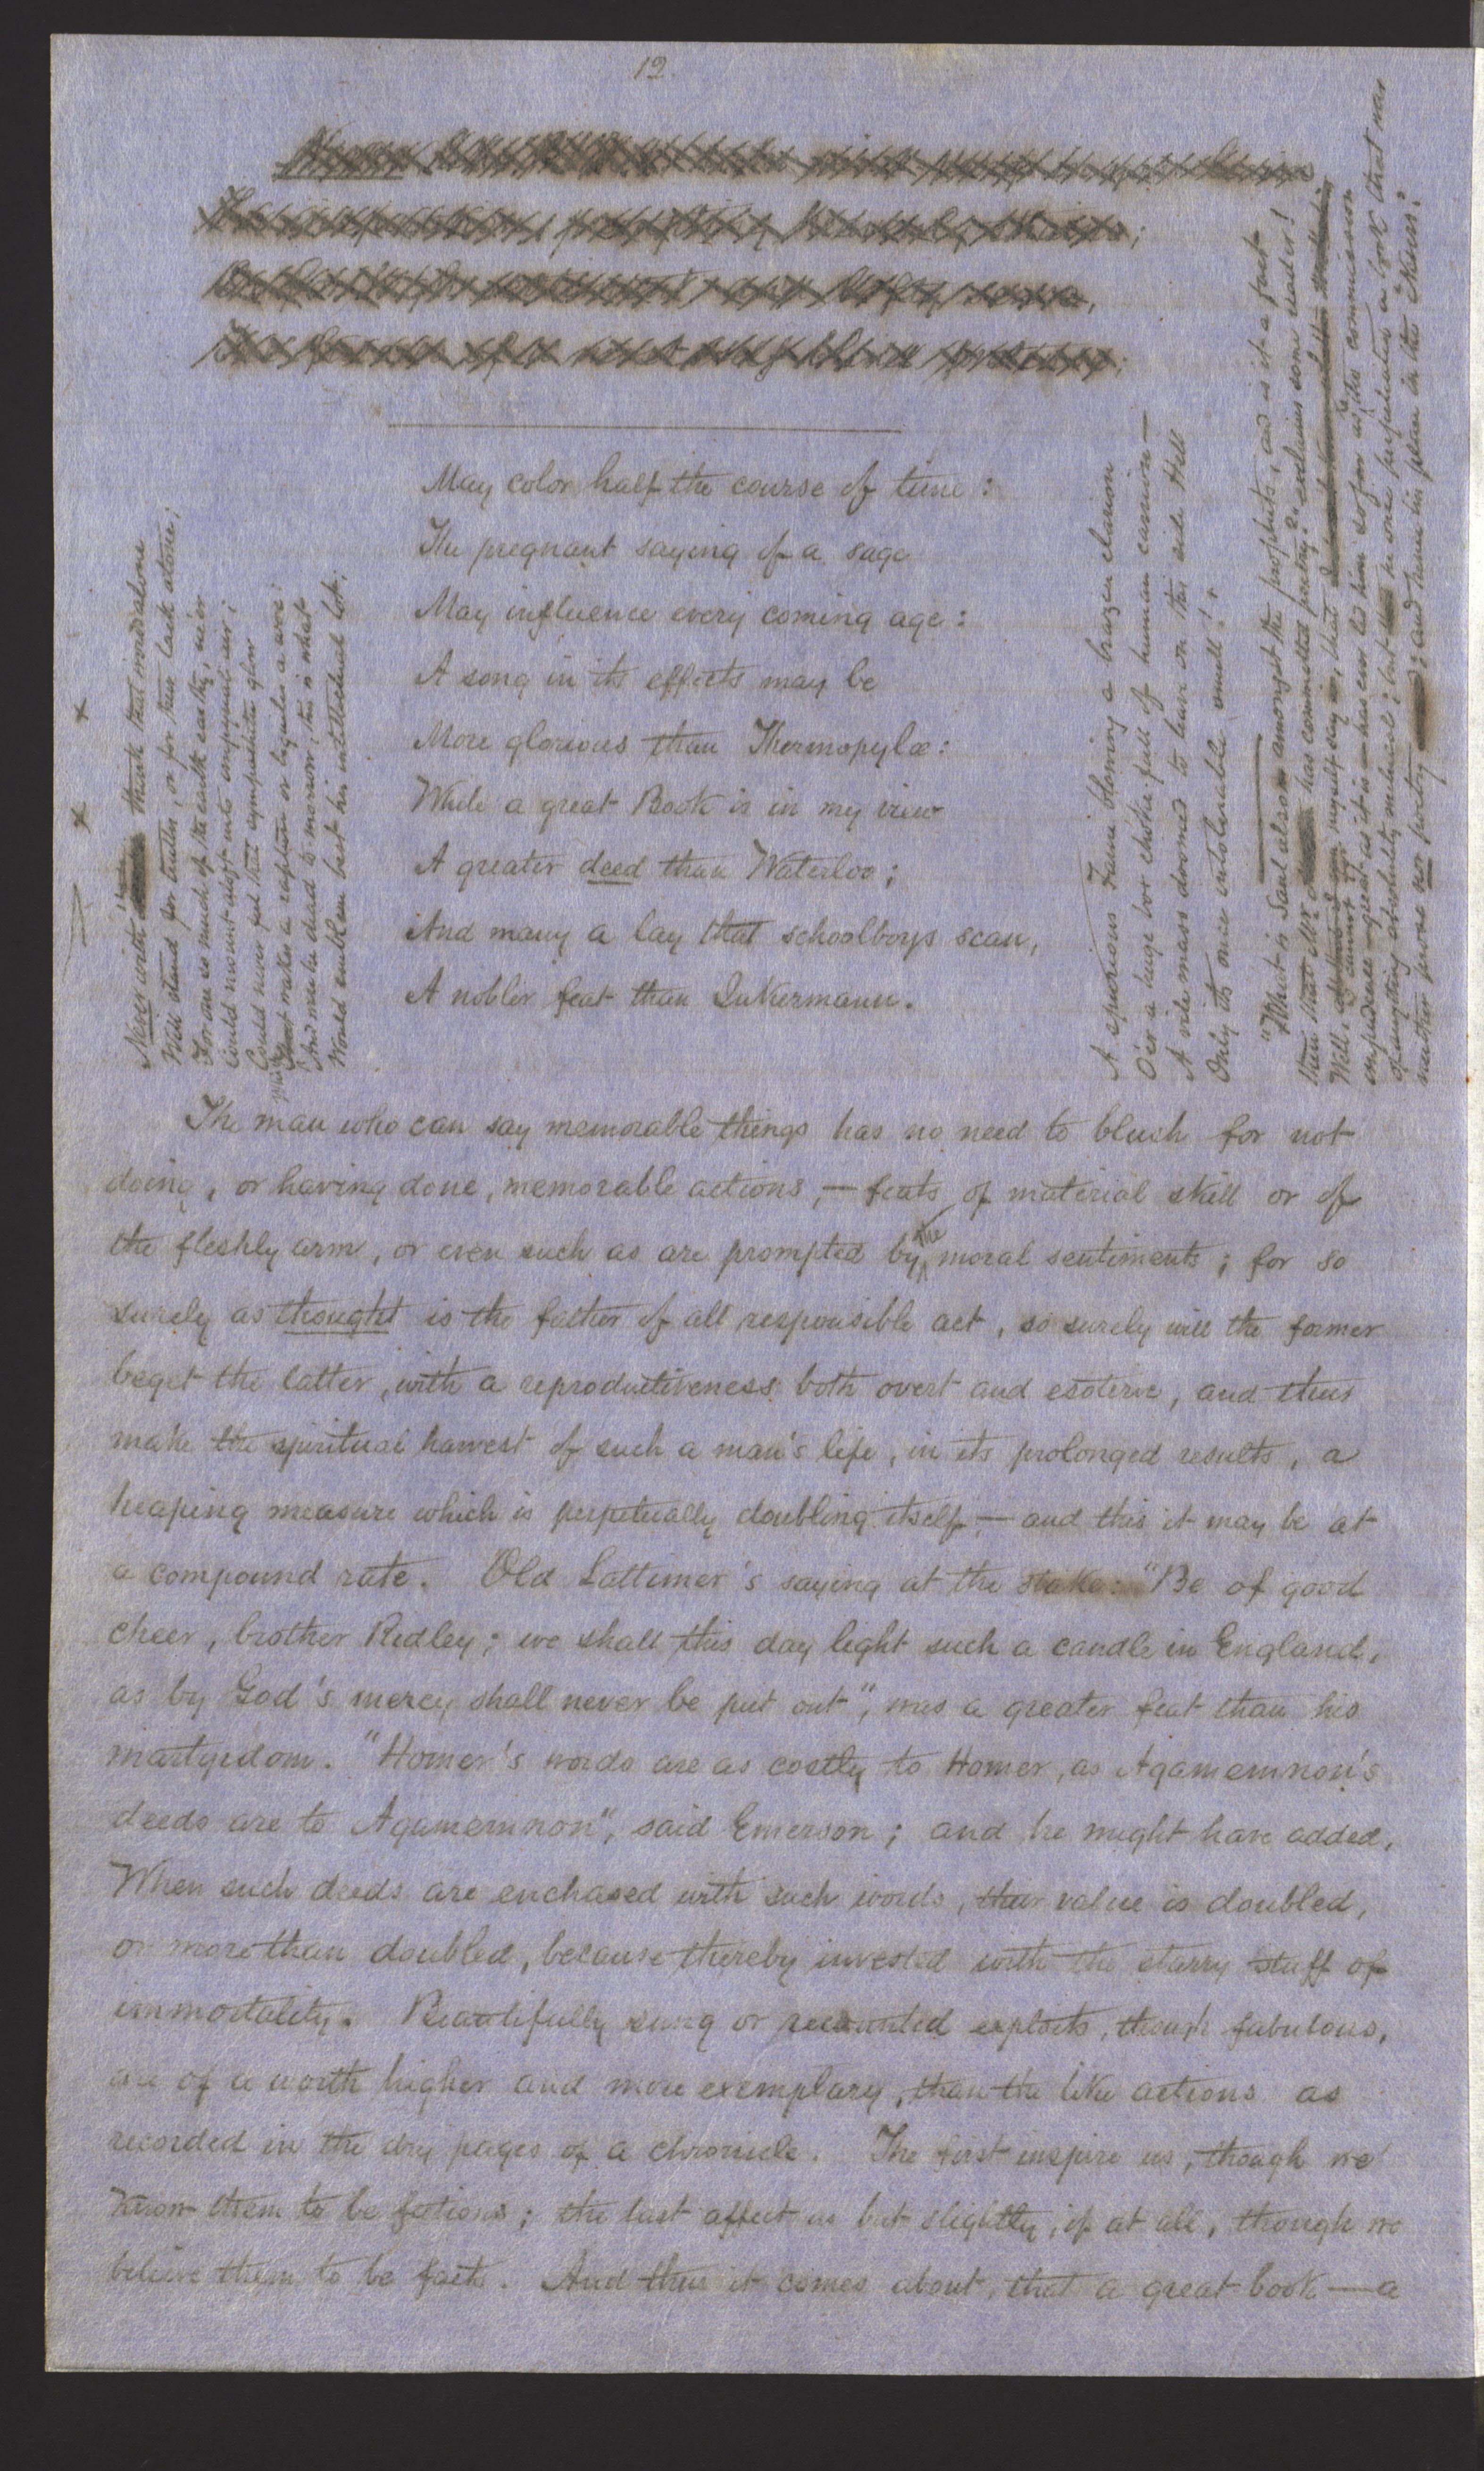 12.
May color half the course of time :
The pregnant saying of a sage
May influence every coming age :
A song in its effects may be
More glorious than Thermopylæ :
While a great Book is in my view
A greater deed than Waterloo ;
And many a lay that schoolboys scan,
A nobler feat than Inkermann.
Never with thank that
Will stand for truths, or for their lack atone ;
For one so much of the earth earthy, ne'er
Could mount aloft into empyreal air ;
Could never feel that sympathetic glow
makes a rapture or beguiles a woe :
And were he dead to-morrow, this is what
Would emblem best his intellectual lot ;
A spurious Fame blowing a brazen clarion
O'er a huge box choke-full of human carrion —
A vile mass doomed to leave on this side Hell
Only its once intolerable smell ! +
"What is Saul also amongst the prophets, and is it a fact
then that Mr. has committed poetry?" exclaims some reader !
Well, I cannot myself say, that
impudence — great as it is — has ever led him so far as the commission
of anything absolutely metrical ; but no one perpetrates a book that was
neither prose nor poetry ; and hence his place in the "News."
The man who can say memorable things has no need to blush for not
doing, or having done, memorable actions, — feats of material skill or of
the fleshly arm, or even such as are prompted by the moral sentiments ; for so
surely as thought is the father of all responsible act, so surely will the former
beget the latter, with a reproductiveness both overt and esoteric, and thus
make the spiritual harvest of such a man's life, in its prolonged results, a
heaping measure which is perpetually doubling itself, — and this it may be at
a compound rate. Old Lattimer's saying at the stake : "Be of good
cheer, brother Ridley ; we shall this day light such a candle in England,
as by God's mercy shall never be put out", was a greater feat than his
martyrdom. "Homer's words are as costly to Homer, as Agamemnon's
deeds are to Agamemnon", said Emerson ; and he might have added,
When such deeds are enchased with such words, their value is doubled,
or more than doubled, because thereby invested with the starry stuff of
immortality. Beautifully sung or recounted exploits, though fabulous,
are of a worth higher and more exemplary, than the like actions as
recorded in the dry pages of a chronicle. The first inspire us, though we
know them to be fictions ; the last affect us but slightly, if at all, though we
believe them to be facts. And thus it comes about, that a great book — a